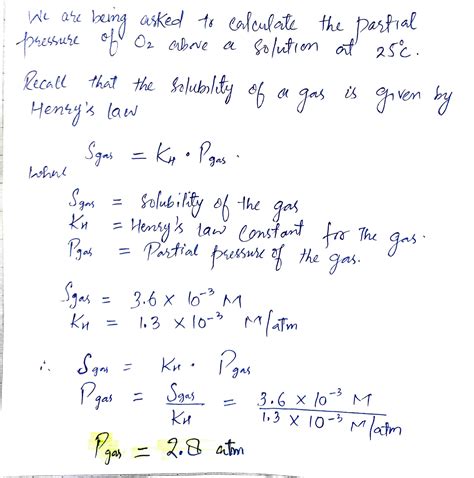 We are being asked to calculate the partial
pressure of O2 above a solution at 25°c.
Recall that the solubility of a gas is given by
Henry's law
Sgas = KH • Pgas .
where
Sgas = Solubility of the gas
KH = Henry's law Constant for The gas.
Pgas = Partial pressure of the gas.
Sgas = 3.6 × 10⁻³ M
KH = 1.3 × 10⁻³ M/atm
∴ Sgas = KH • Pgas
Pgas = Sgas / KH = 3.6 × 10⁻³ M / 1.3 × 10⁻³ M/atm
Pgas = 2.8 atm